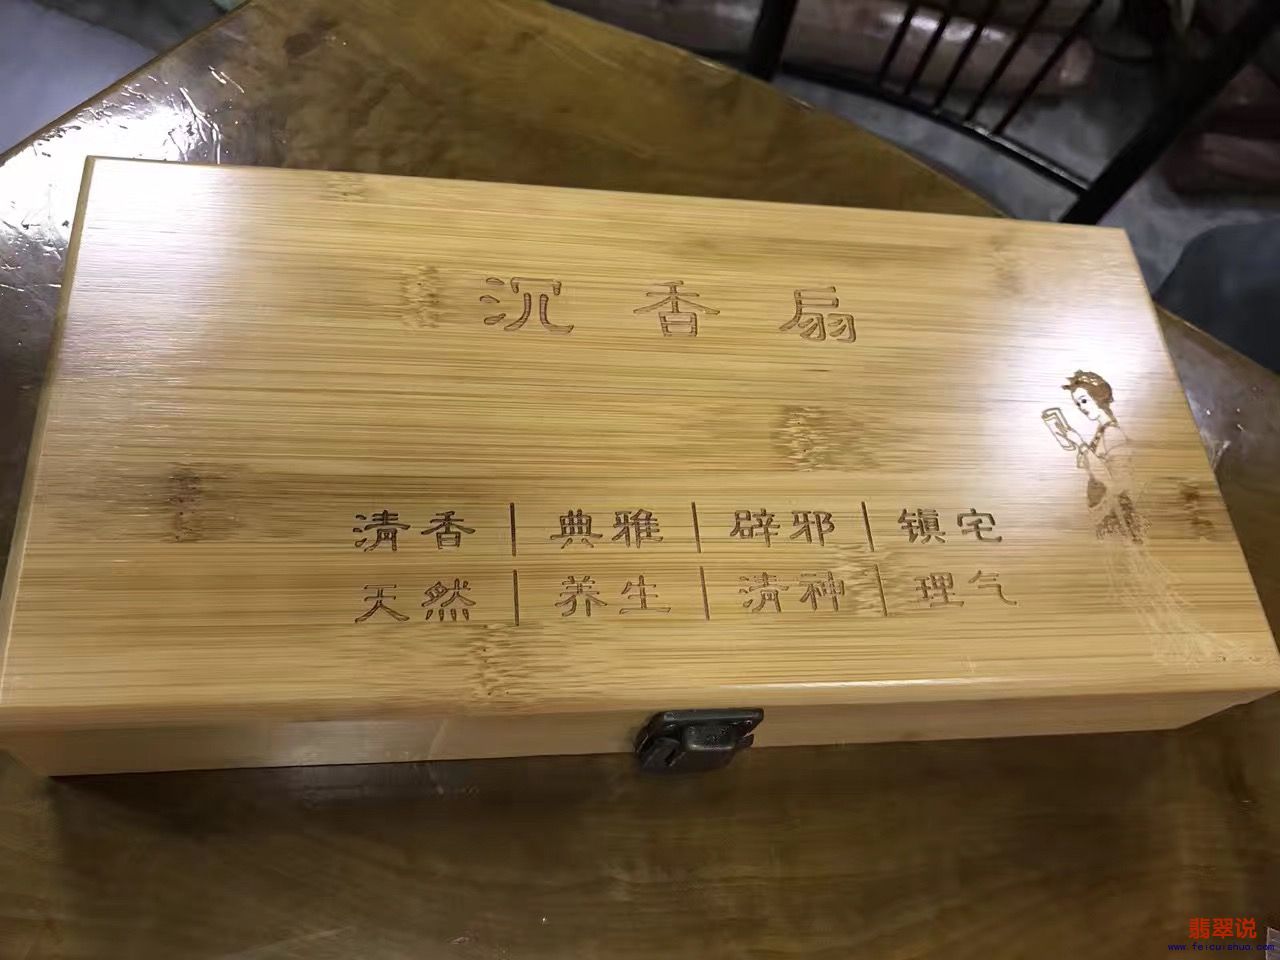 沉香扇
清香|典雅|辟邪|镇宅
天然|养生|清神|理气
翡翠说
www.feicuishuo.com